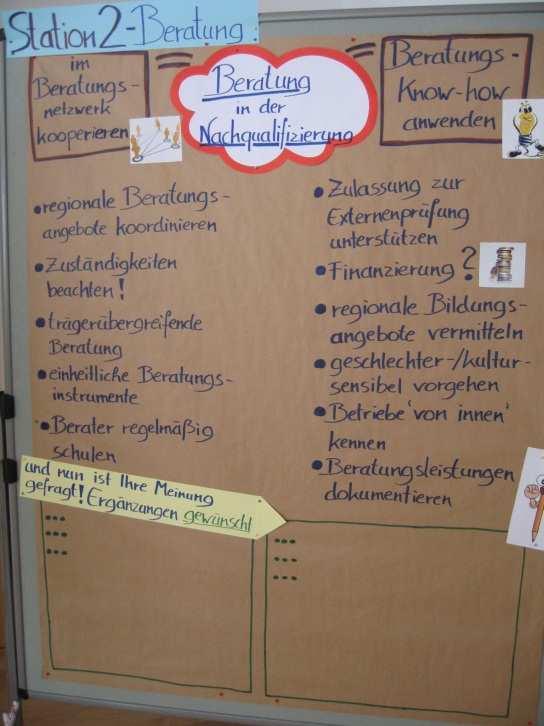 Station 2 - Beratung
im
Beratungs-
netzwerk
kooperieren
Beratung
in der
Nachqualifizierung
Beratungs-
Know-how
anwenden
• regionale Beratungs-
angebote koordinieren
• Zuständigkeiten
beachten!
• trägerübergreifende
Beratung
• einheitliche Beratungs-
instrumente
• Berater regelmäßig
schulen
• Zulassung zur
Externenprüfung
unterstützen
• Finanzierung?
• regionale Bildungs-
angebote vermitteln
• geschlechter-/kultur-
sensibel vorgehen
• Betriebe 'von innen'
kennen
• Beratungsleistungen
dokumentieren
und nun ist Ihre Meinung
gefragt! Ergänzungen gewünscht